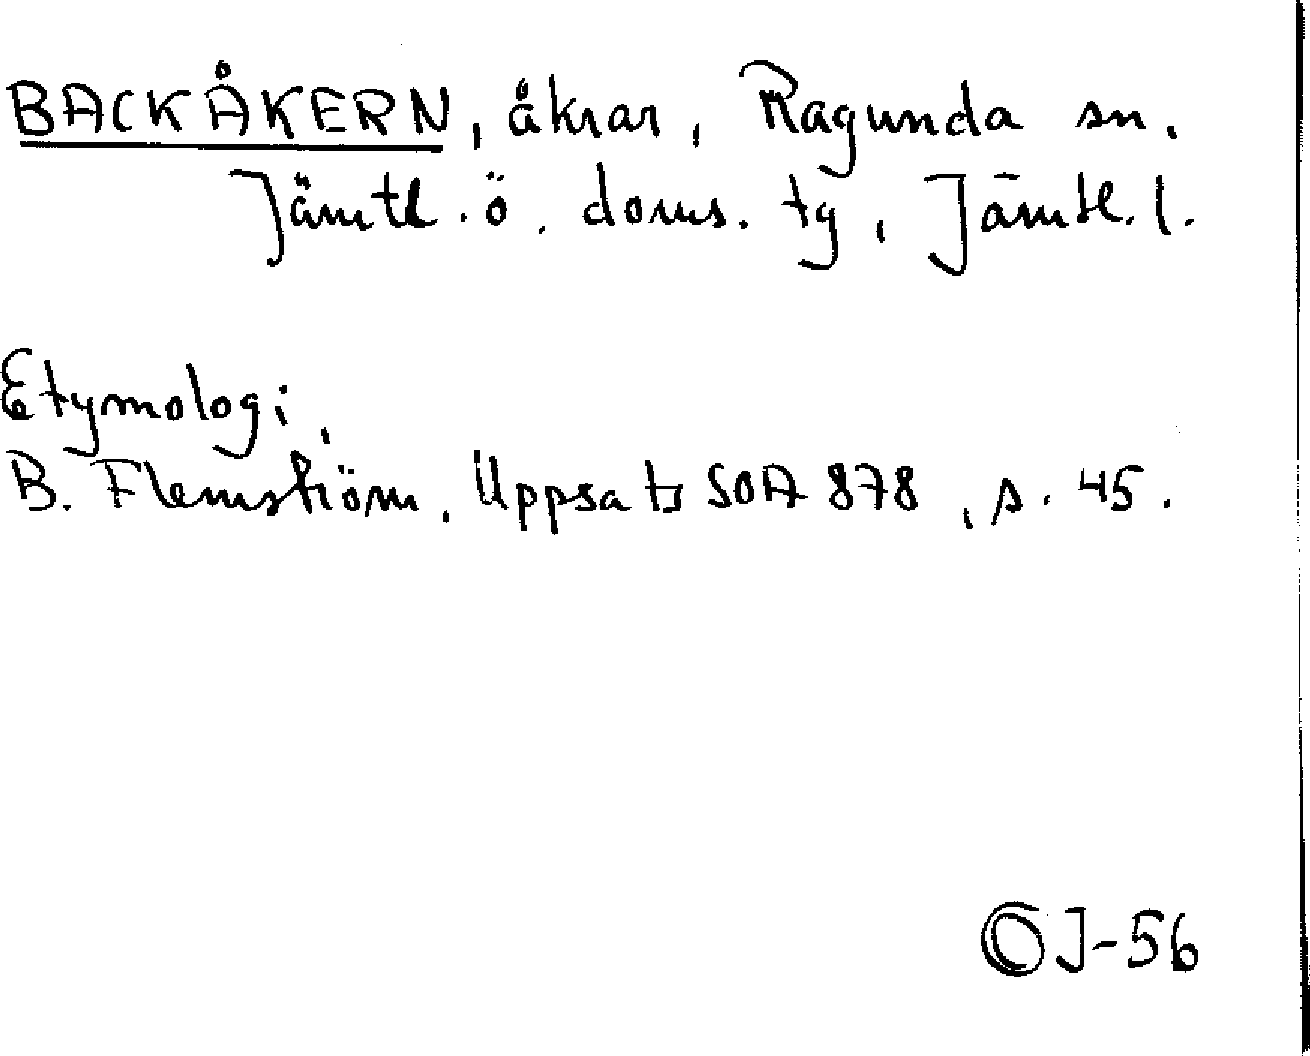 BACKÅKERN, åkrar, Ragunda sn.
Jämtl. ö. doms. tg, Jämtl. l.
Etymologi,
B. Flemström, Uppsats SOA 878, s. 45.
OJ-56